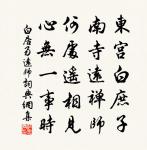 東宮白庶子
南寺遠禪師
何處遙相見
心無一事時
白居易遠師詞典網集